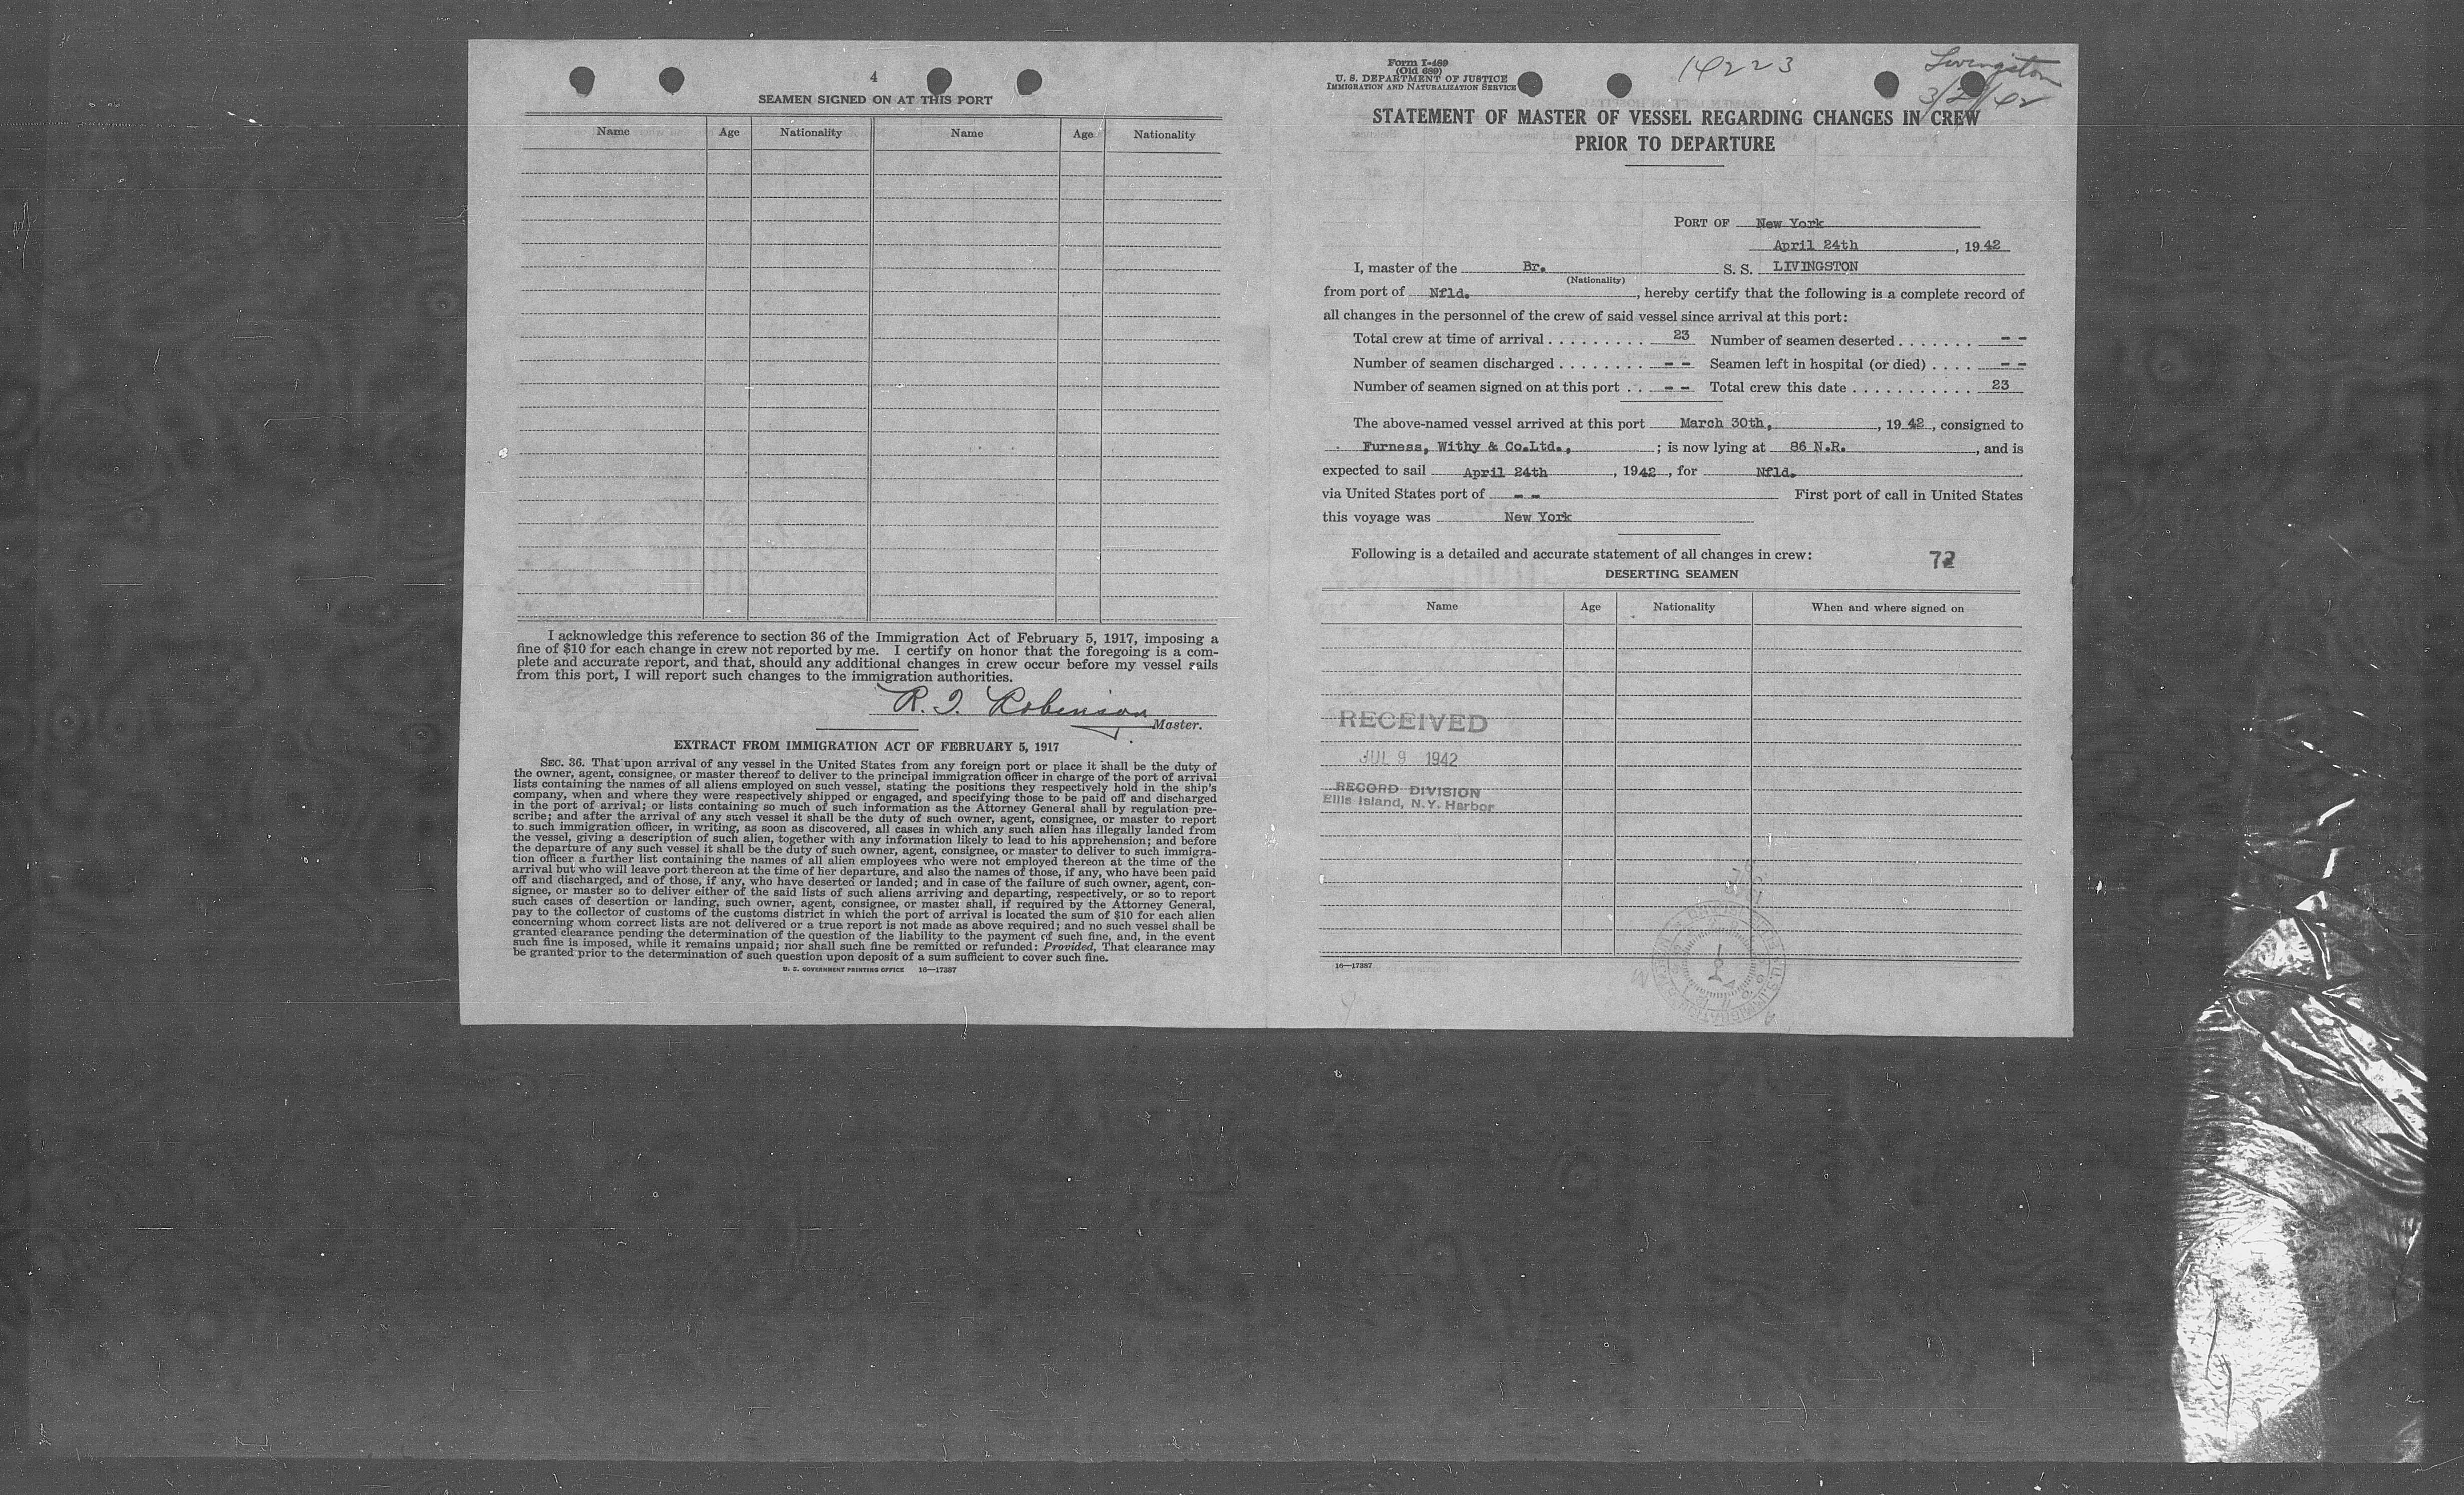 4
SEAMEN SIGNED ON AT THIS PORT
Name Age Nationality Name Age Nationality
I acknowledge this reference to section 36 of the Immigration Act of February 5, 1917, imposing a
fine of $10 for each change in crew not reported by me. I certify on honor that the foregoing is a com-
plete and accurate report, and that, should any additional changes in crew occur before my vessel sails
from this port, I will report such changes to the immigration authorities.
R. I. Robinson
Master.
EXTRACT FROM IMMIGRATION ACT OF FEBRUARY 5, 1917
SEC. 36. That upon arrival of any vessel in the United States from any foreign port or place it shall be the duty of
the owner, agent, consignee, or master thereof to deliver to the principal immigration officer in charge of the port of arrival
lists containing the names of all aliens employed on such vessel, stating the positions they respectively hold in the ship's
company, when and where they were respectively shipped or engaged, and specifying those to be paid off and discharged
in the port of arrival; or lists containing so much of such information as the Attorney General shall by regulation pre-
scribe; and after the arrival of any such vessel it shall be the duty of such owner, agent, consignee, or master to report
to such immigration officer, in writing, as soon as discovered, all cases in which any such alien has illegally landed from
the vessel, giving a description of such alien, together with any information likely to lead to his apprehension; and before
the departure of any such vessel it shall be the duty of such owner, agent, consignee, or master to deliver to such immigra-
tion officer a further list containing the names of all alien employees who were not employed thereon at the time of the
arrival but who will leave port thereon at the time of her departure, and also the names of those, if any, who have been paid
off and discharged, and of those, if any, who have deserted or landed; and in case of the failure of such owner, agent, con-
signee, or master so to deliver either of the said lists of such aliens arriving and departing, respectively, or so to report
such cases of desertion or landing, such owner, agent, consignee, or master shall, if required by the Attorney General,
pay to the collector of customs of the customs district in which the port of arrival is located the sum of $10 for each alien
concerning whom correct lists are not delivered or a true report is not made as above required; and no such vessel shall be
granted clearance pending the determination of the question of the liability to the payment of such fine, and, in the event
such fine is imposed, while it remains unpaid; nor shall such fine be remitted or refunded: Provided, That clearance may
be granted prior to the determination of such question upon deposit of a sum sufficient to cover such fine.
U. S. GOVERNMENT PRINTING OFFICE 16—17387
Form I-489
(Old 689)
U. S. DEPARTMENT OF JUSTICE
IMMIGRATION AND NATURALIZATION SERVICE
14223
Livingston
STATEMENT OF MASTER OF VESSEL REGARDING CHANGES IN CREW
PRIOR TO DEPARTURE
PORT OF New York
April 24th, 1942
I, master of the Br. S. S. LIVINGSTON
(Nationality)
from port of Nfld., hereby certify that the following is a complete record of
all changes in the personnel of the crew of said vessel since arrival at this port:
Total crew at time of arrival . . . . . . . . . 23 Number of seamen deserted . . . . . . . - -
Number of seamen discharged . . . . . . . . - - Seamen left in hospital (or died) . . . . - -
Number of seamen signed on at this port . . - - Total crew this date . . . . . . . . . . . 23
The above-named vessel arrived at this port March 30th, , 1942, consigned to
Furness, Withy & Co.Ltd., ; is now lying at 86 N.R. , and is
expected to sail April 24th, 1942, for Nfld.
via United States port of - - First port of call in United States
this voyage was New York
Following is a detailed and accurate statement of all changes in crew:
72
DESERTING SEAMEN
Name Age Nationality When and where signed on
RECEIVED
JUL 9 1942
RECORD DIVISION
Ellis Island, N.Y. Harbor
16—17387